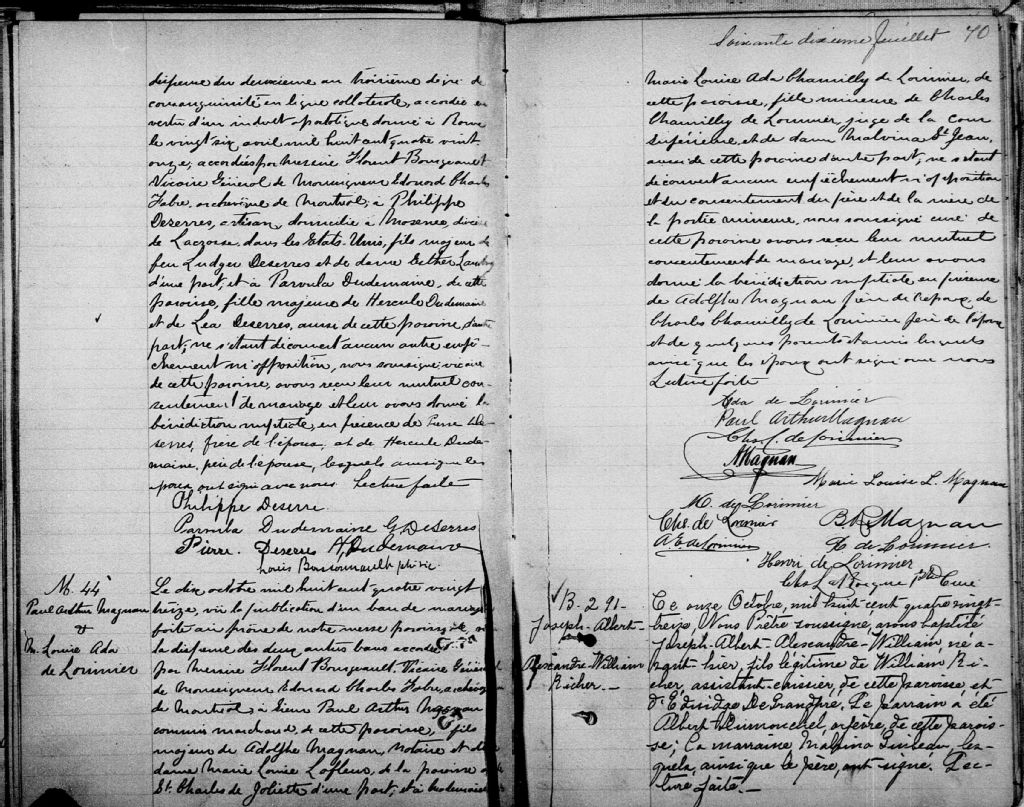 dispense du deuxième au troisième degré de
consanguinité en ligne collatérale, accordée en
vertu d'un indult apostolique donné à Rome
le vingt six avril mil huit cent quatre vingt
onze, accordées par Messire Florent Bourgeault
Vicaire Général de Monseigneur Edouard Charles
Fabre, archevêque de Montréal, à Philippe
Deserres, artisan, domicilié à Mosenee, diocèse
de Lacrosse, dans les Etats-Unis, fils majeur de
feu Ludger Deserres et de dame Esther
d'une part, et à Parmila Dudemaine, de cette
paroisse, fille majeure de Hercule Dudemaine
et de Lea Deserres, aussi de cette paroisse, d'autre
part, ne s'étant découvert aucun autre empê-
chement ni opposition, nous soussigné, vicaire
de cette paroisse, avons reçu leur mutuel con-
sentement de mariage et leur avons donné la
bénédiction nuptiale, en présence de Pierre De-
serres, frère de l'époux, et de Hercule Dude-
maine, père de l'épouse, lesquels ainsi que les
époux, ont signé avec nous. Lecture faite
Philippe Deserre
Parmila Dudemaine G. DeSerres
Pierre Deserres H. Dudemaine
Louis ptre vic
M. 44
Paul Arthur Magnan
&
M. Louise Ada
de Lorimier
Le dix octobre mil huit cent quatre vingt
treize, vu la publication d'un ban de mariage
faite au prône de notre messe paroissiale, vu
la dispense des deux autres bans accordée
par Messire Florent Bourgeault, Vicaire Général
de Monseigneur Edouard Charles Fabre, archevêque
de Montréal, à Sieur Paul Arthur Magnan
commis marchand, de cette paroisse, fils
majeur de Adolphe Magnan, notaire et de
dame Marie Louise Lafleur, de la paroisse de
St. Charles de Joliette d'une part, et à Mademoiselle
Soixante dixième feuillet 70
Marie Louise Ada Chamilly de Lorimier, de
cette paroisse, fille mineure de Charles
Chamilly de Lorimier, juge de la Cour
Supérieure, et de dame Malvina St Jean,
aussi de cette paroisse d'autre part, ne s'étant
découvert aucun empêchement ni opposition
et du consentement du père et de la mère de
la partie mineure, nous soussigné curé de
cette paroisse avons reçu leur mutuel
consentement de mariage, et leur avons
donné la bénédiction nuptiale en présence
de Adolphe Magnan père de l'époux, de
Charles Chamilly de Lorimier père de l'épouse
et de quelques parents et amis lesquels
ainsi que les époux ont signé avec nous
Lecture faite
Ada de Lorimier
Paul Arthur Magnan
Chs C. de Lorimier
A Magnan
Marie Louise L. Magnan
M. de Lorimier
Chs. de Lorimier B. A. Magnan
A. E. de Lorimier
de Lorimier
Henri de Lorimier
Chs Ptre Curé
B. 291-
Joseph-Albert-
Alexandre-William
Richer.-
Ce onze Octobre, mil huit cent quatre vingt-
treize, Nous Prêtre soussigné, avons baptisé
Joseph-Albert-Alexandre-William, né a-
vant-hier, fils légitime de William Ri-
cher, assistant-épicier, de cette paroisse, et
d'Edwidge De Grandpré. Le parrain a été
Albert Dumouchel, orfèvre, de cette parois-
se; la marraine Malvina, les-
quels, ainsi que le père, ont signé. Lec-
ture faite.-